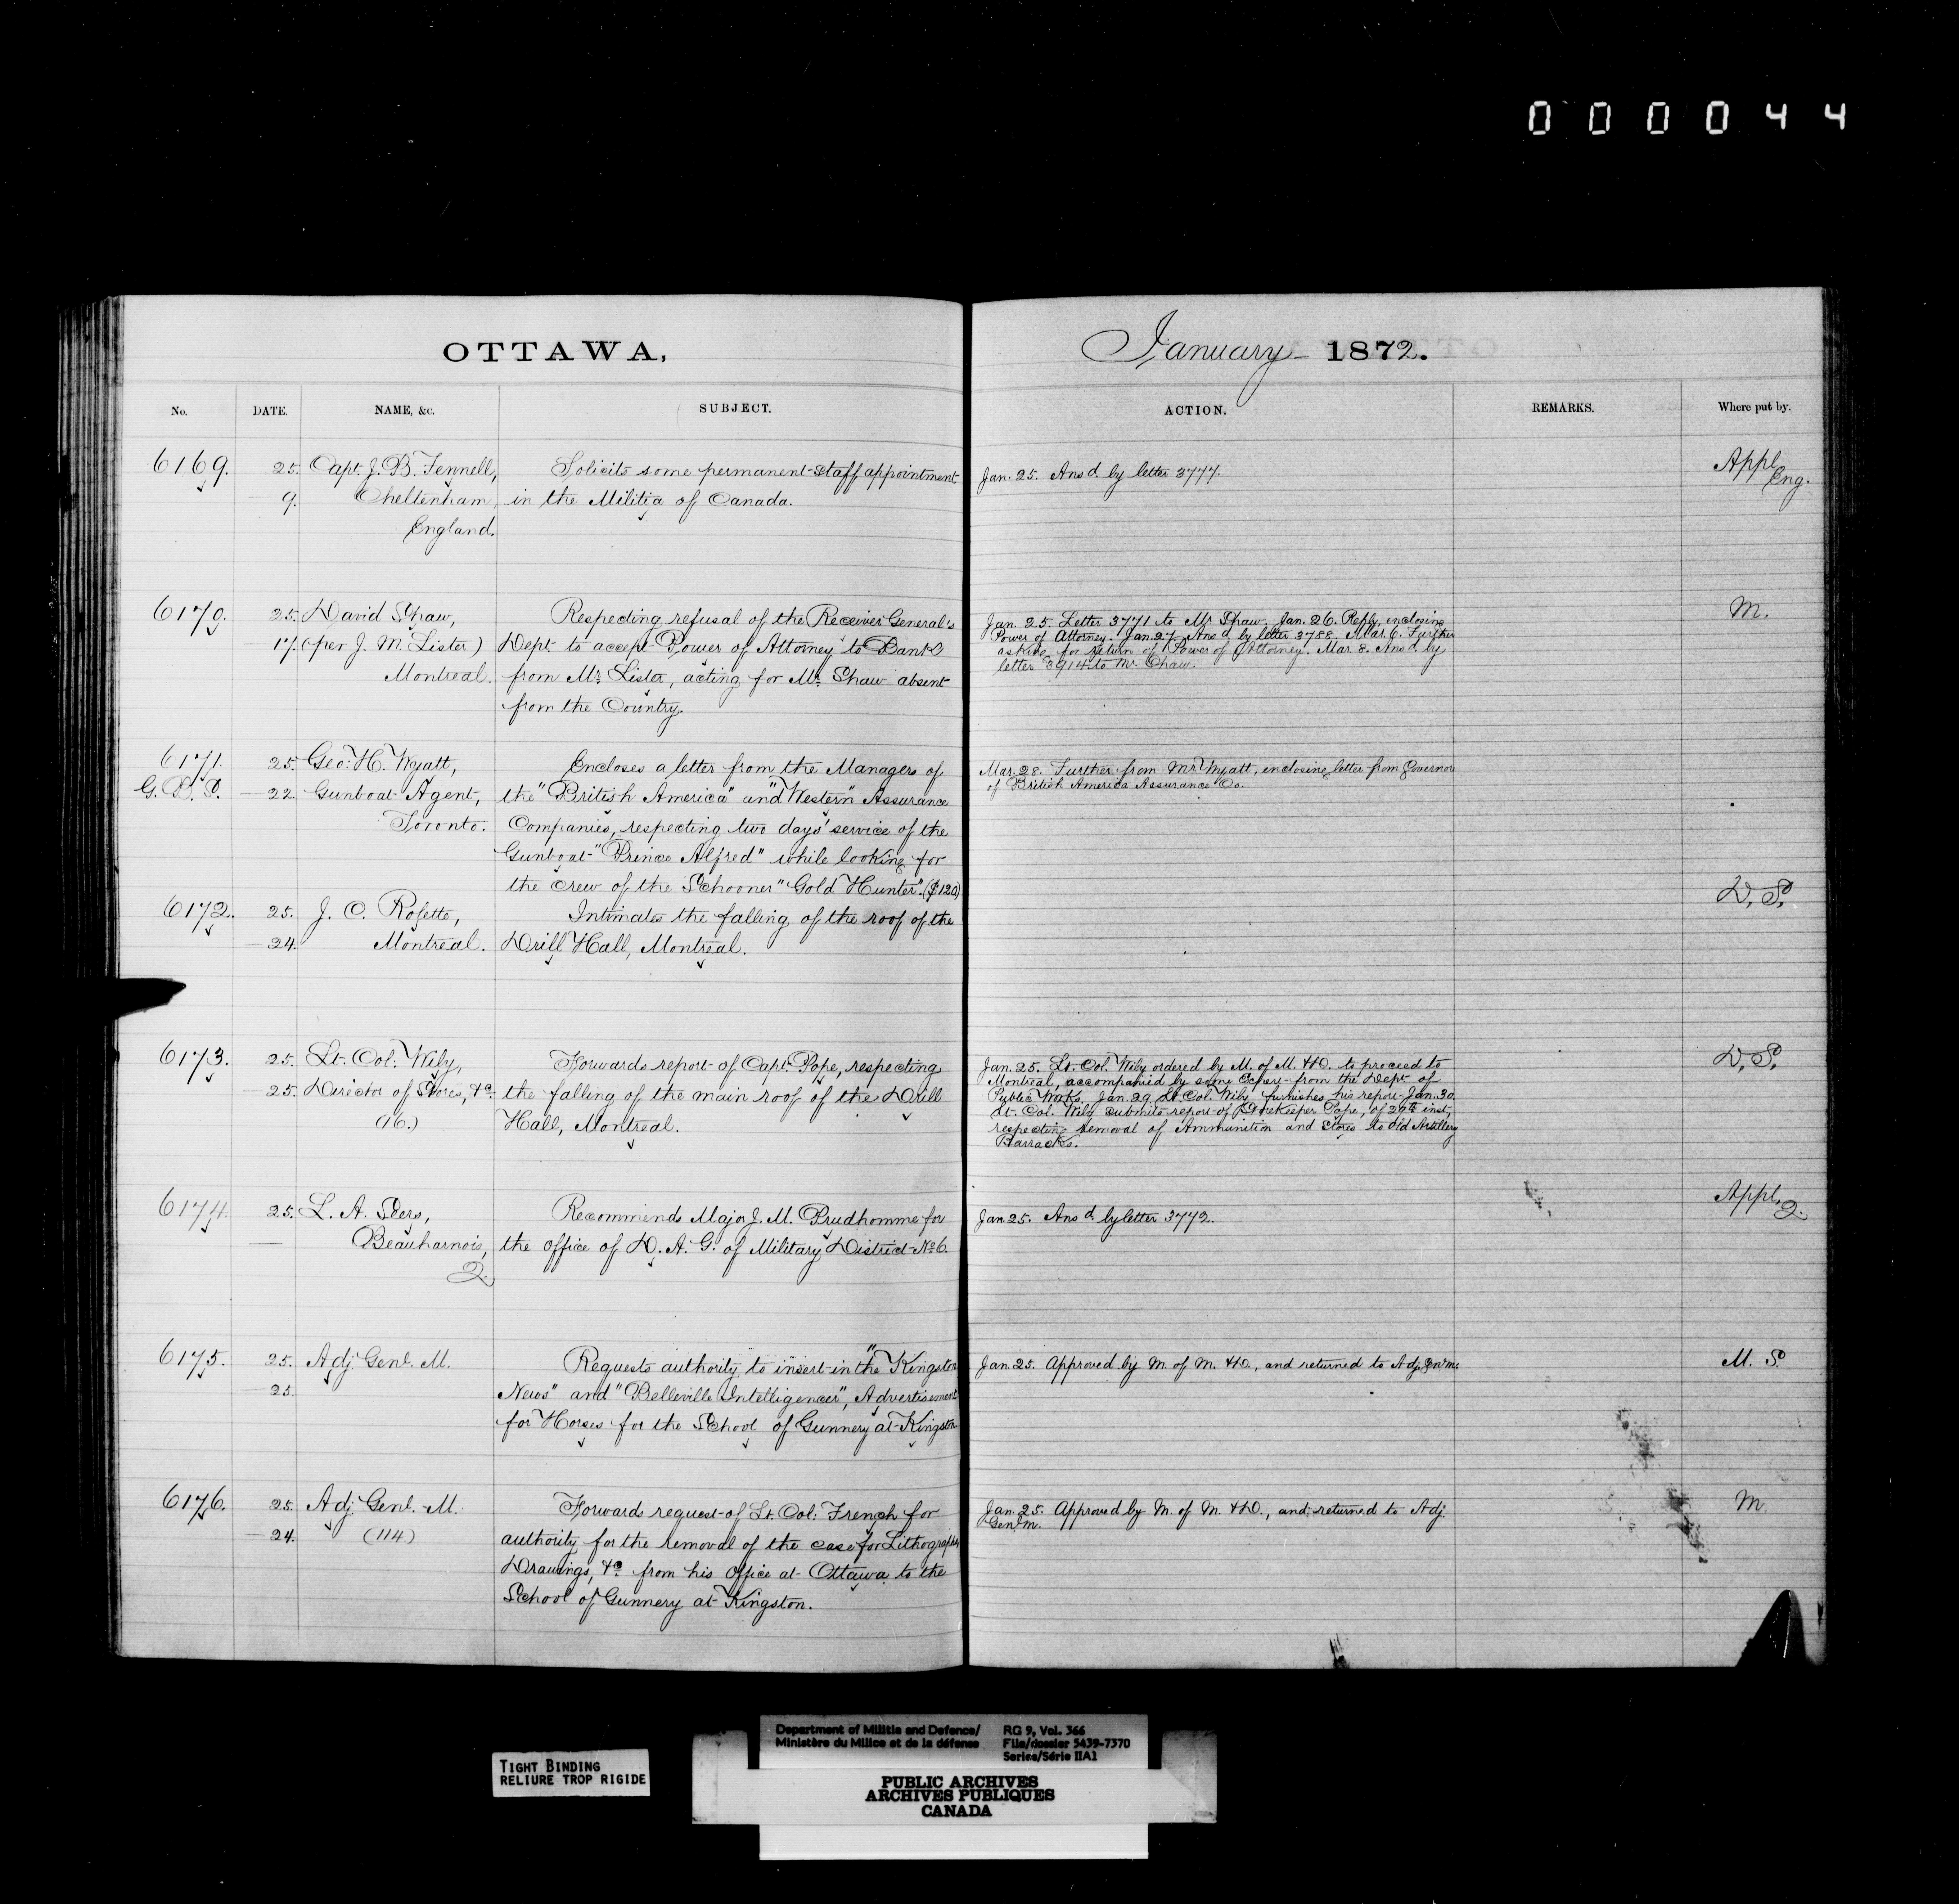 000044
OTTAWA,
January 1872.
No. DATE. NAME, &c. SUBJECT.
ACTION. REMARKS. Where put by.
6169. 25. Capt. J. B. Fennell, Solicits some permanent staff appointment
9. Cheltenham, in the Militia of Canada.
England.
Jan. 25. Ansd. by letter 3777.
Appl.
Eng.
6170. 25. David Shaw, Respecting refusal of the Receiver General's
17. (per J. M. Lister) Dept to accept Power of Attorney to Bank
Montreal. from Mr. Lister, acting for Mr. Shaw absent
from the Country.
Jan. 25. Letter 3771 to Mr Shaw. Jan. 26. Reply, inclosing
Power of Attorney. Jan. 27. Ansd. by letter 3788. Mar. 6. Further
asking for return of Power of Attorney. Mar. 8. Ansd by
letter 3914 to Mr. Shaw.
M.
6171. 25. Geo: H. Wyatt, Encloses a letter from the Managers of
22. Gunboat Agent, the "British America" and "Western" Assurance
Toronto. Companies, respecting two days' service of the
Gunboat "Prince Alfred" while looking for
the crew of the Schooner "Gold Hunter". ($120)
Mar. 28. Further from Mr. Wyatt, inclosing letter from Governor
of British America Assurance Co.
6172. 25. J. O. Rosette, Intimates the falling of the roof of the
24. Montreal. Drill Hall, Montreal.
D. S.
6173. 25. Lt. Col. Wily, Forwards report of Capt. Pope, respecting
25. Director of Stores, &c. the falling of the main roof of the Drill
(16.) Hall, Montreal.
Jan. 25. Lt. Col. Wily ordered by M. of M. & D. to proceed to
Montreal, accompanied by some Expert from the Dept of
Public Works. Jan. 29. Lt Col. Wily furnishes his report. Jan. 30.
Lt. Col. Wily submits report of Storekeeper Pope, of 29th inst,
respecting removal of Ammunition and Stores to old Artillery
Barracks.
D. S.
6174. 25. L. A. Seers, Recommends Major J. M. Prudhomme for
Beauharnois, the office of D. A. G. of Military District No 6.
Q.
Jan. 25. Ansd. by letter 3772.
Appl.
Q.
6175. 25. Adj. Genl. M. Requests authority to insert in the "Kingston
25. News" and "Belleville Intelligencer", Advertisement
for Horses for the School of Gunnery at Kingston
Jan. 25. Approved by M. of M. & D., and returned to Adj. Genl. M.
M. S.
6176. 25. Adj. Genl. M. Forwards request of Lt. Col: French for
24. (114) authority for the removal of the case for Lithographs,
Drawings, &c. from his Office at Ottawa to the
School of Gunnery at Kingston.
Jan. 25. Approved by M. of M. & D., and returned to Adj.
Genl. M.
M.
TIGHT BINDING
RELIURE TROP RIGIDE
Department of Militia and Defence/
Ministère du Milice et de la défense
RG 9, Vol. 366
File/dossier 5439-7370
Series/Série IIA1
PUBLIC ARCHIVES
ARCHIVES PUBLIQUES
CANADA